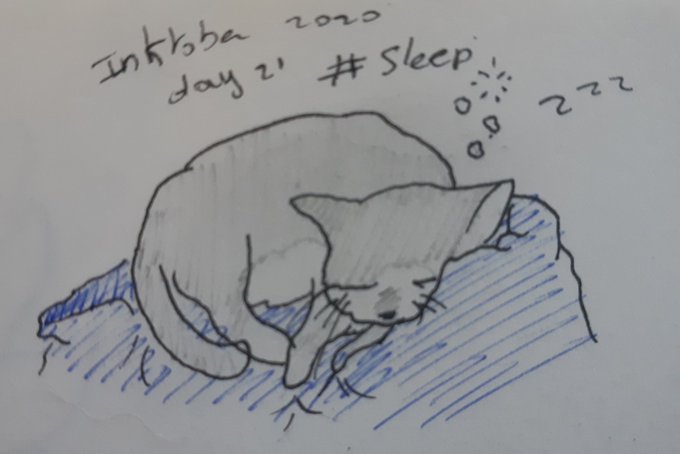 Inktober 2020
day 21 # Sleep
zzz